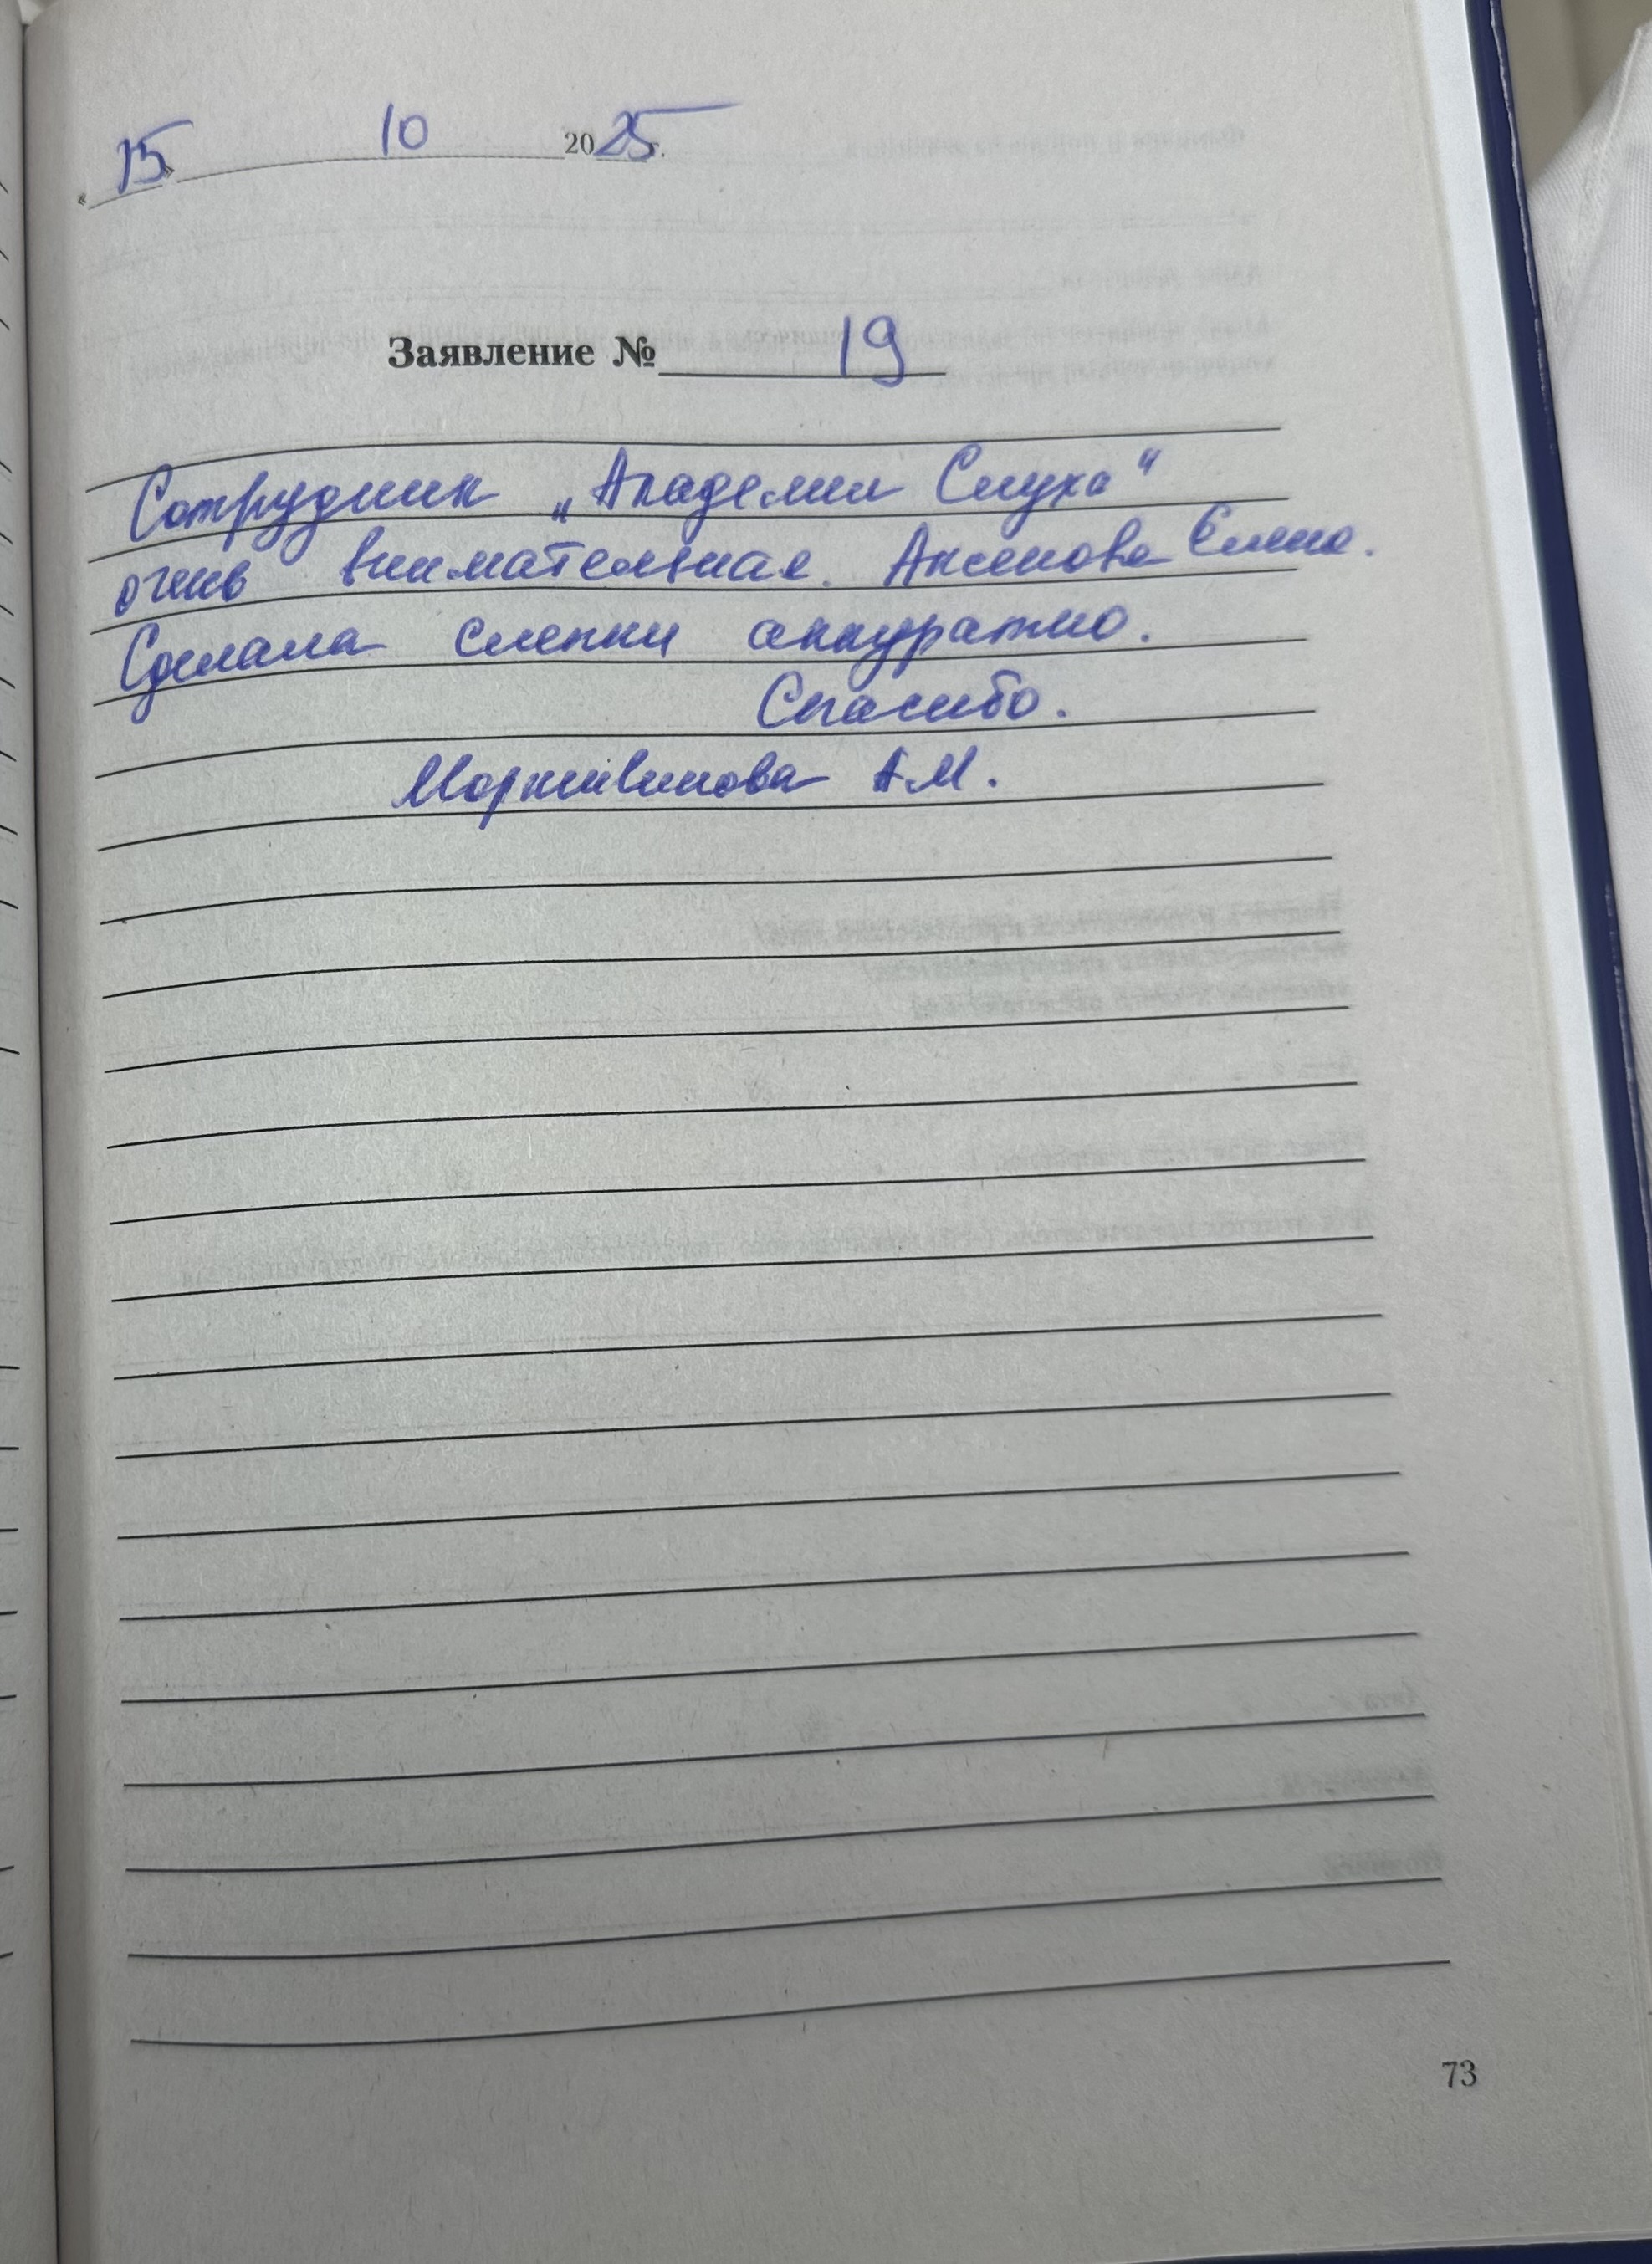 «15» 10 2025 г.
Заявление № 19
Сотрудник „Академии Слуха"
очень внимательная. Аксенова Елена.
Сделала слепки аккуратно.
Спасибо.
А.М.
73